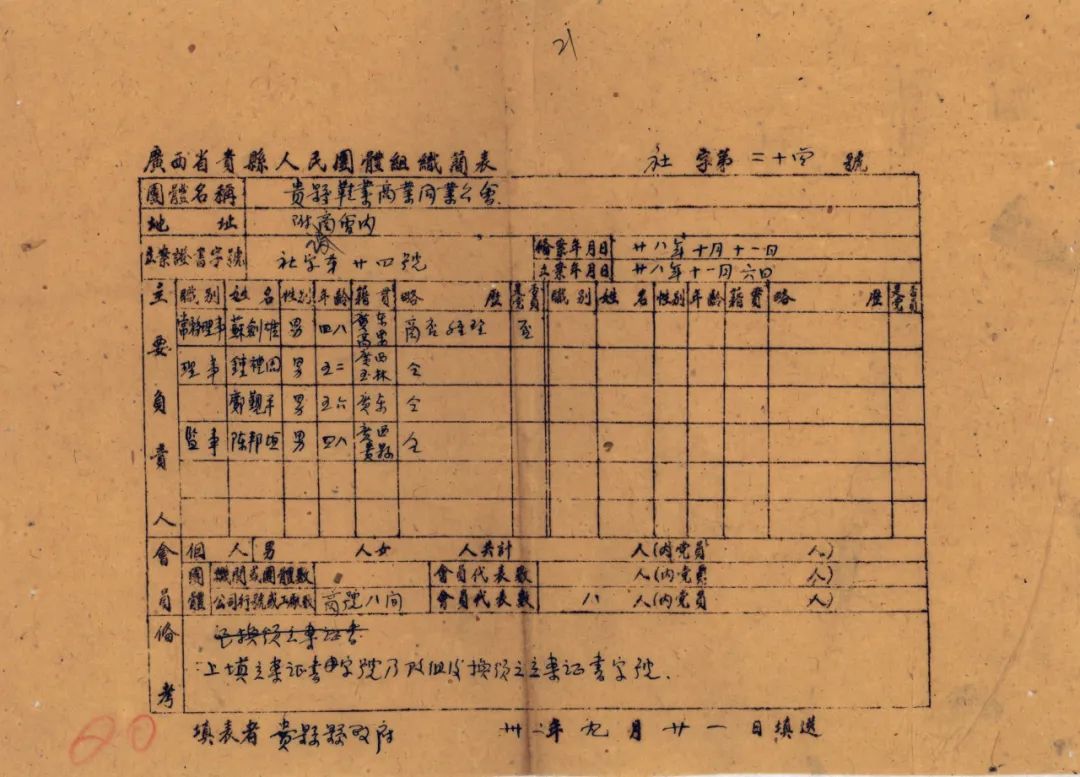 21
廣西省貴縣人民團體組織簡表 社字第二十四號
團體名稱 貴縣鞋業商業同業公會
地址 附商會內
立案證書字號 社字第廿四號 備案年月日 廿八年十月十一日
立案年月日 廿八年十一月六日
主要負責人 職別 姓名 性別 年齡 籍貫 略歷 是否黨員 職別 姓名 性別 年齡 籍貫 略歷 是否黨員
常務理事 蘇劍雄 男 四八 廣東高要 商店經理 否
理事 鍾禮園 男 五二 廣西玉林 仝
鄺觀平 男 五六 廣東 仝
監事 陈邦垣 男 四八 廣西貴縣 仝
會員 個人 男 人女 人共計 人(內党員 人)
團體 機関或團體數 會員代表數 人(內党員 人)
公司行號或工廠數 商號八间 會員代表數 八 人(內党員 人)
備考 已換領立案証書
上填立案証書字號乃改组後換領之立案証書字號.
20 填表者 貴縣縣政府 卅二年九月廿一日填送